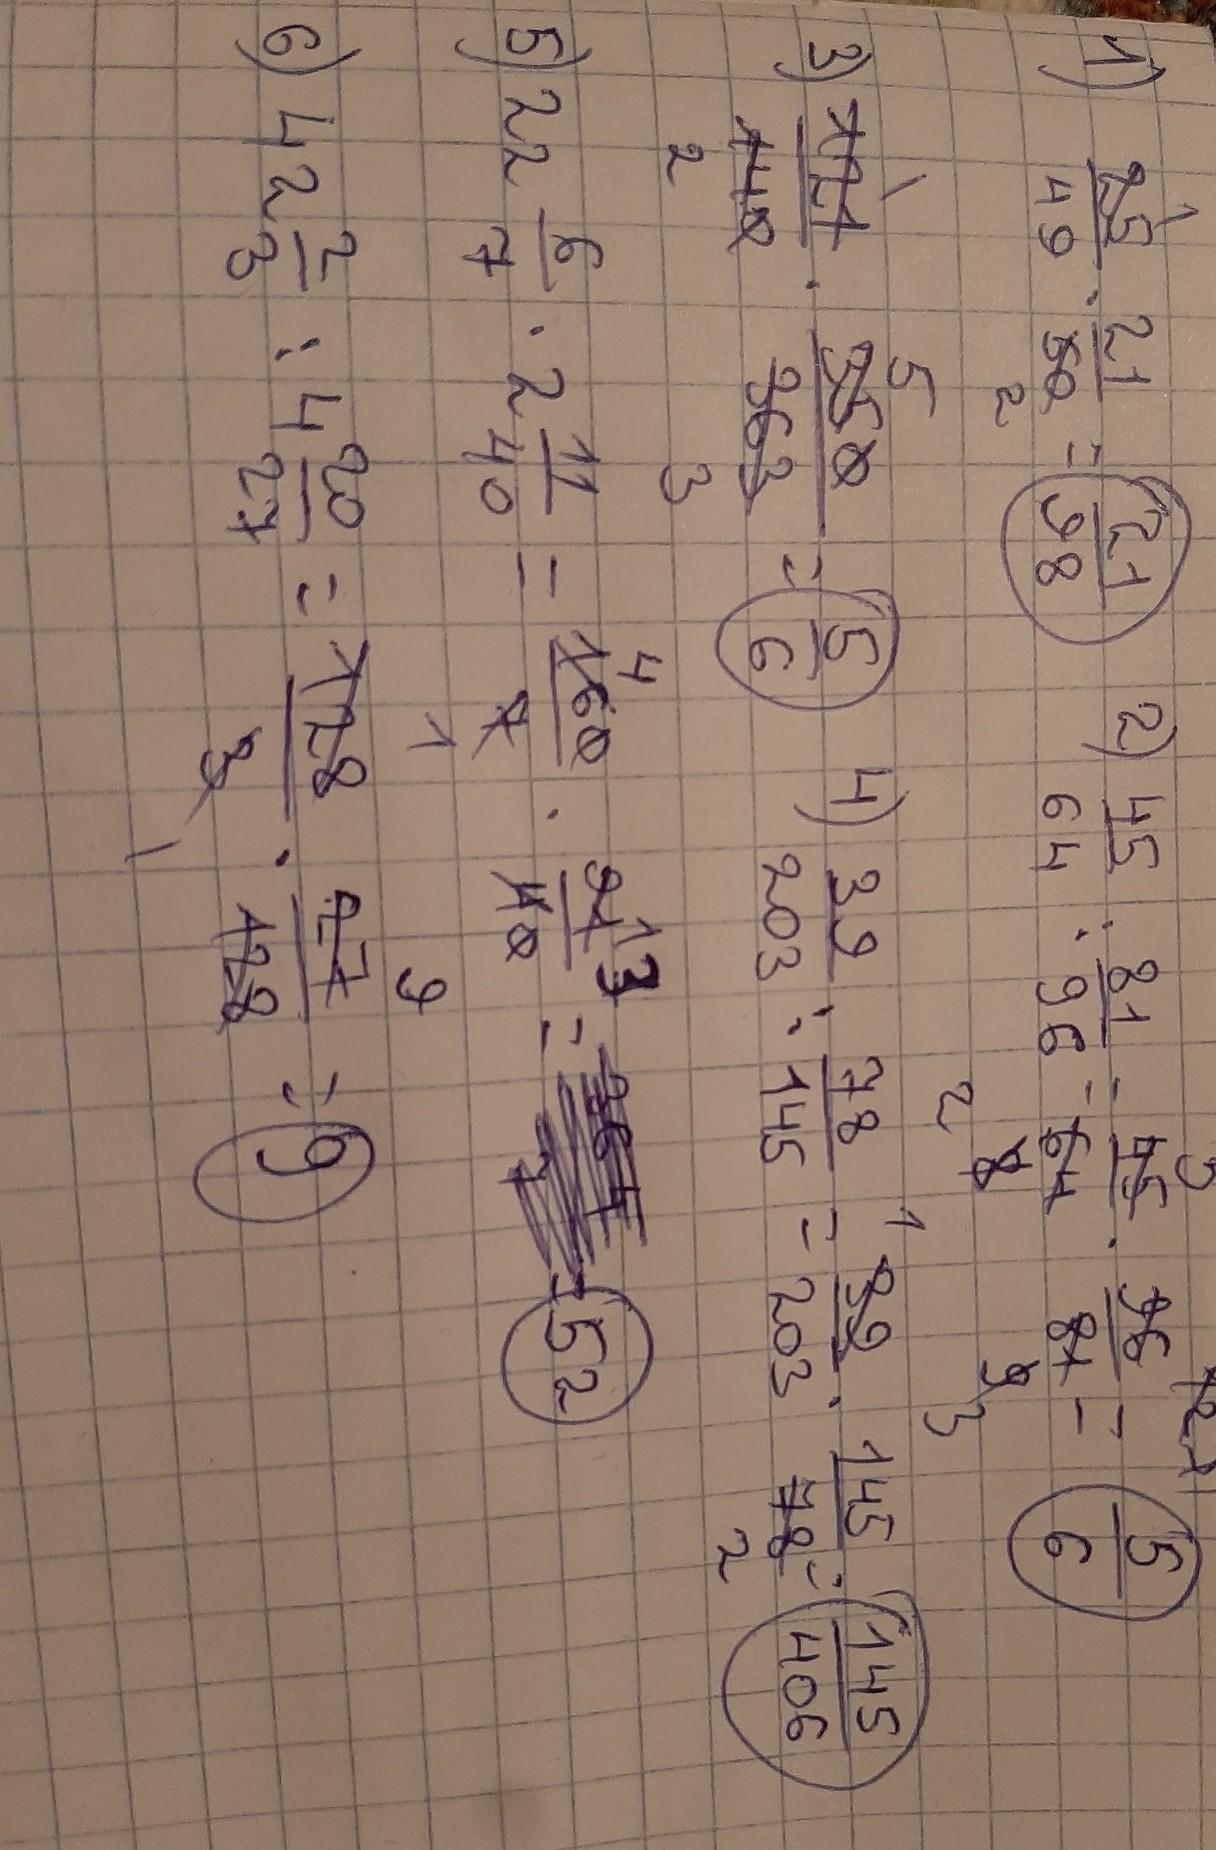 1) 25/49 · 21/50 = 21/98 2) 45/64 : 81/96 = 45/64 · 96/81 = 5/6
3) 121/140 · 350/363 = 5/6 4) 39/203 : 78/145 = 39/203 · 145/78 = 145/406
5) 22 6/7 · 2 11/40 = 160/7 · 91/40 = 52
6) 42 2/3 : 4 20/27 = 128/3 · 27/128 = 9